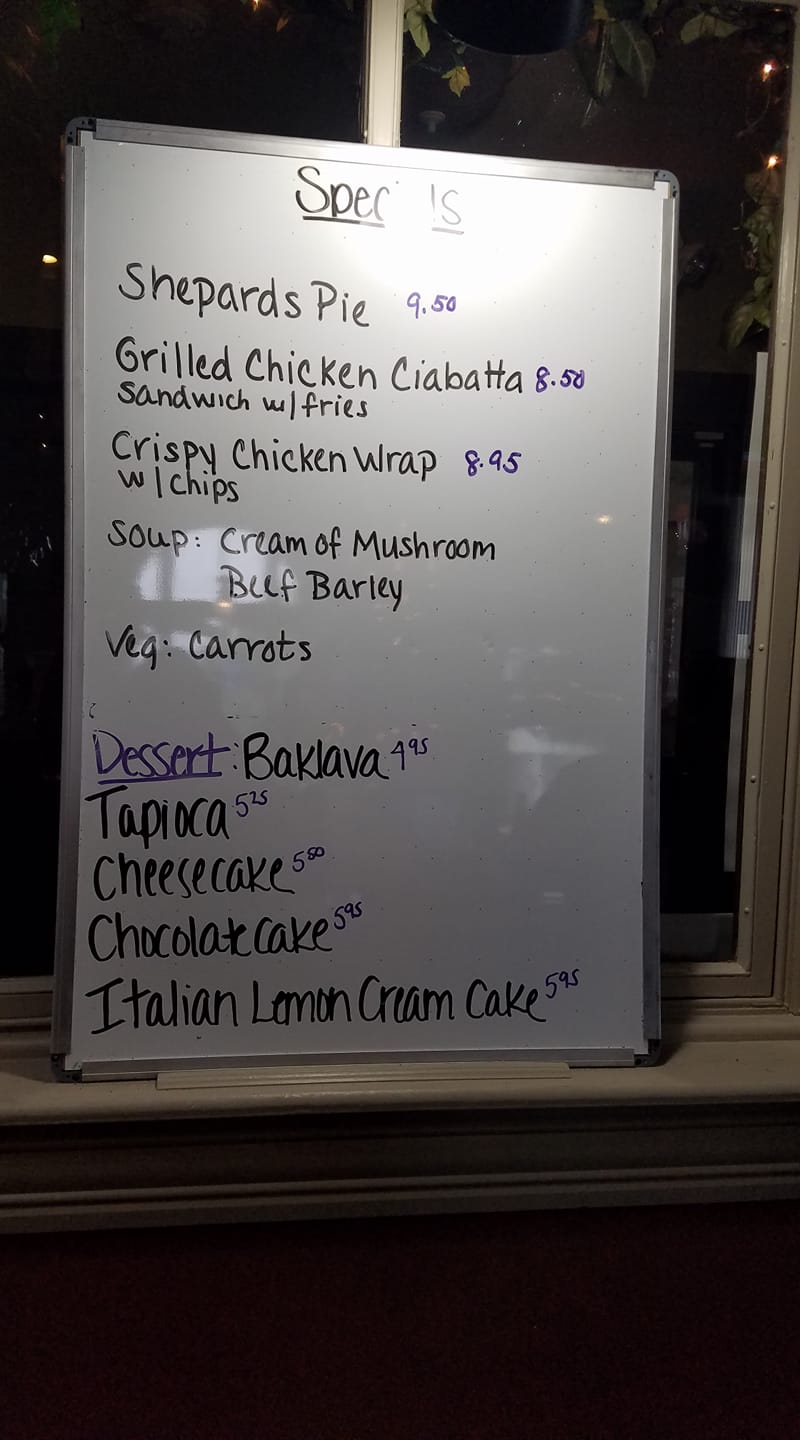 Spec ls
Shepards Pie 9.50
Grilled Chicken Ciabatta 8.50
Sandwich w/fries
Crispy Chicken Wrap 8.95
w/chips
Soup: Cream of Mushroom
Beef Barley
Veg: Carrots
Dessert: Baklava 4 95
Tapioca 5 25
Cheesecake 5 50
Chocolate Cake 5 95
Italian Lemon Cream Cake 5 95